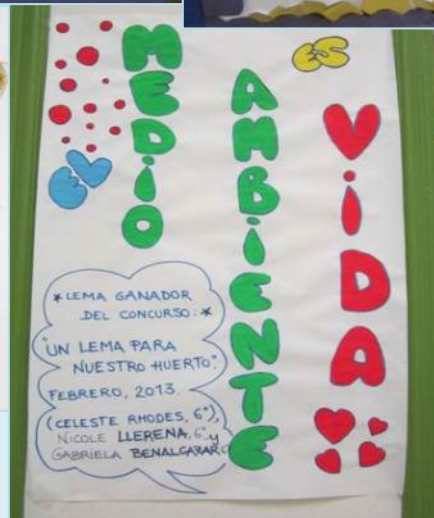 EL
MEDIO
AMBIENTE
ES
VIDA
* LEMA GANADOR
DEL CONCURSO: *
"UN LEMA PARA
NUESTRO HUERTO".
FEBRERO, 2013.
(CELESTE RHODES, 6º),
NICOLE LLERENA, 6º y
GABRIELA